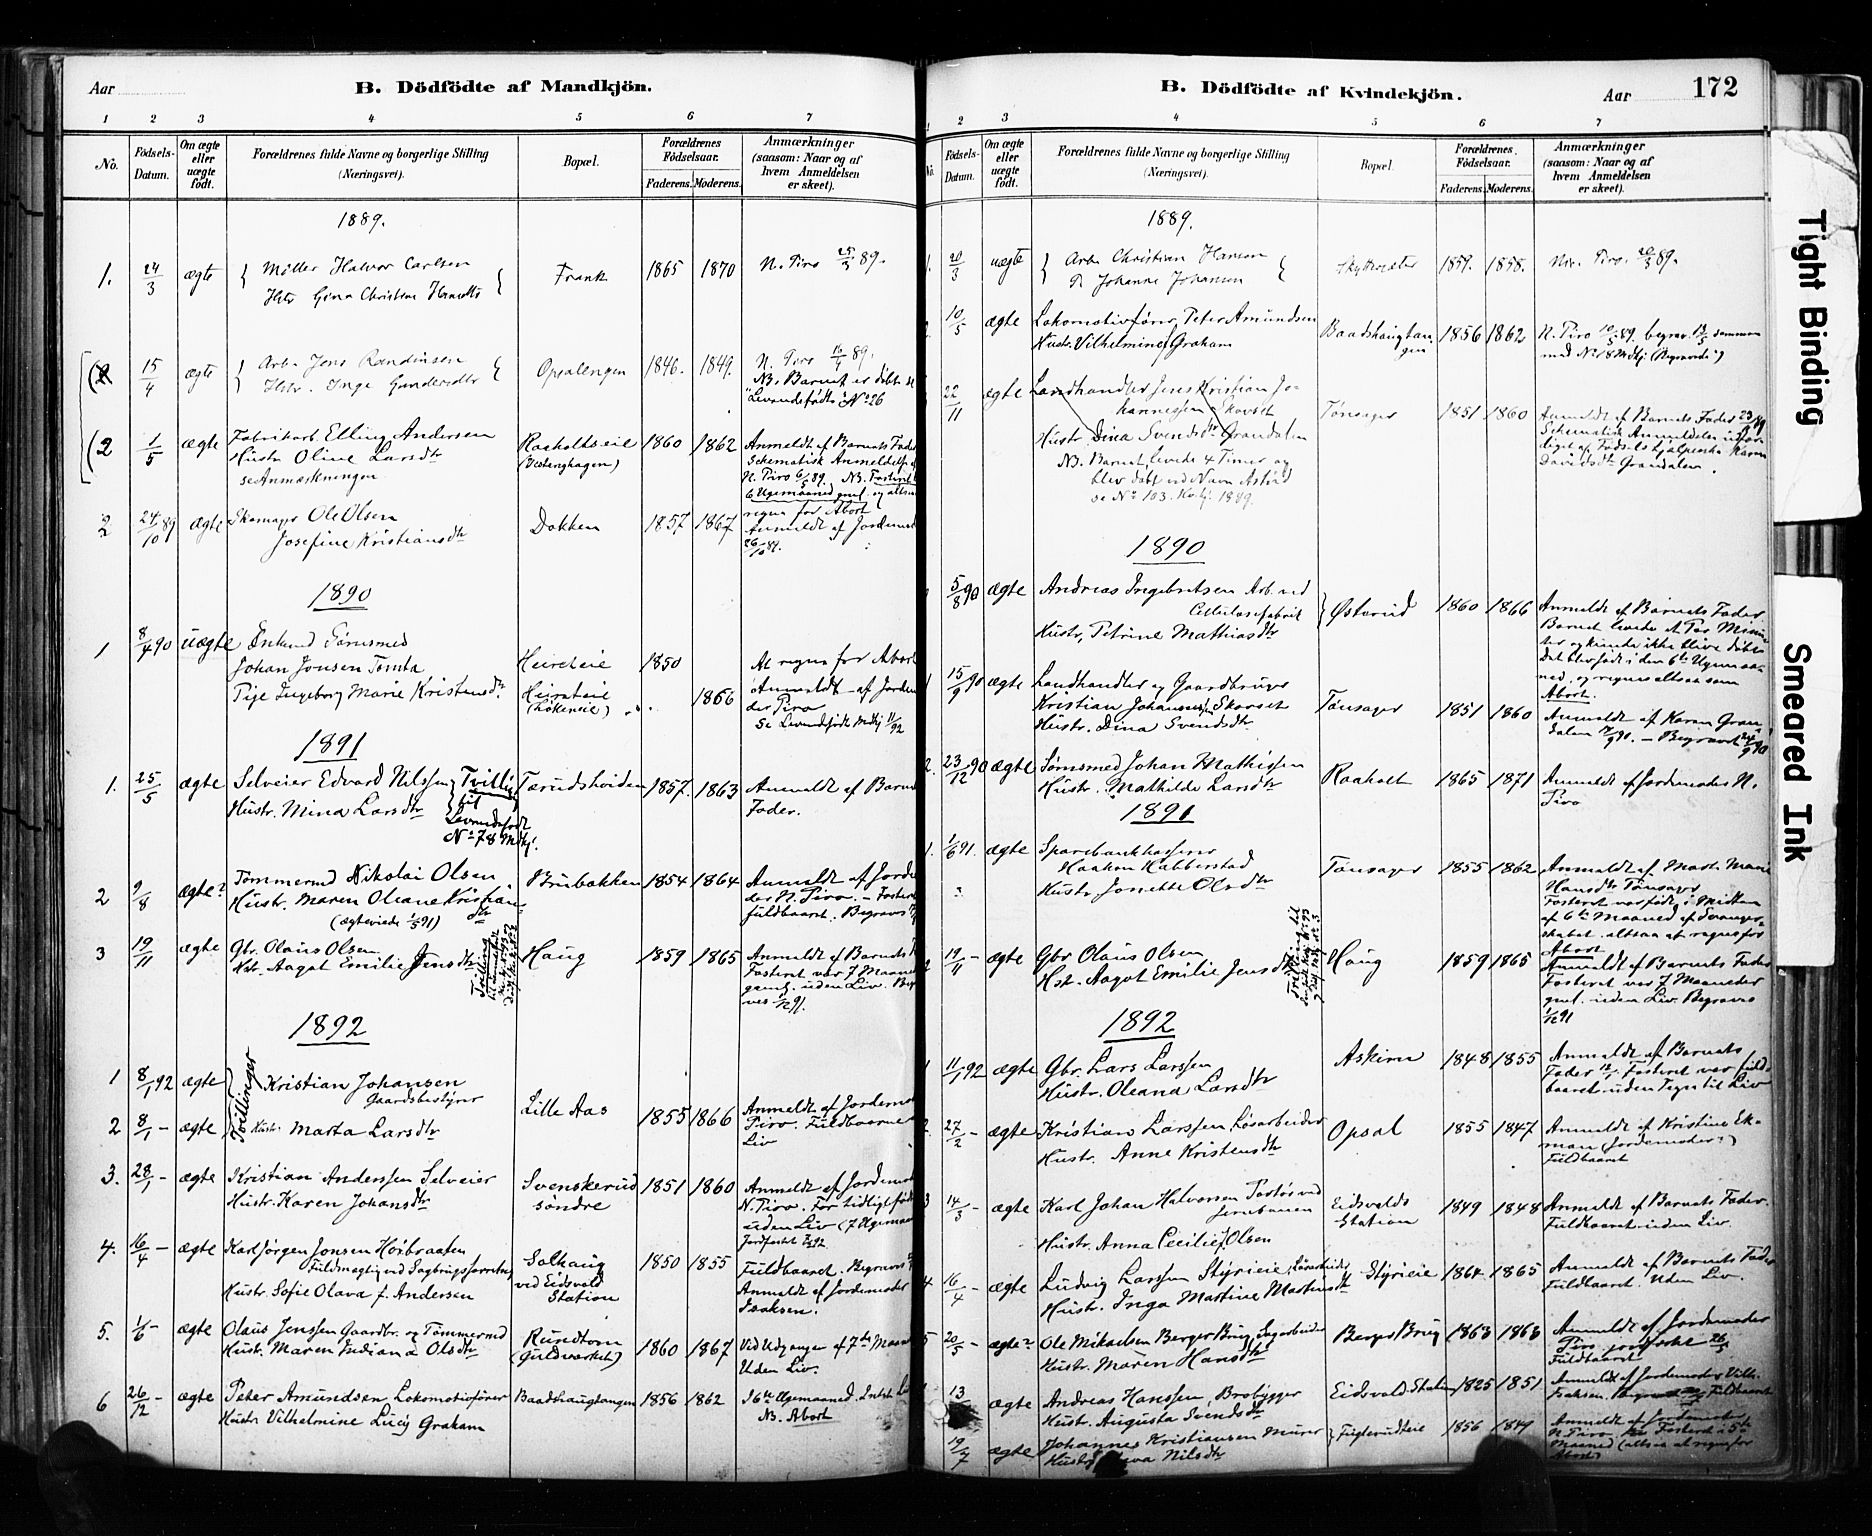 Aar
B. Dödfödte af Mandkjön.
1 2 3 4 5 6 7
No.
Födsels-Datum.
Om ægte eller uægte födt.
Forældrenes fulde Navne og borgerlige Stilling
(Næringsvei).
Bopæl.
Forældrenes Födselsaar.
Faderens. Moderens.
Anmærkninger
(saasom: Naar og af
hvem Anmeldelsen
er skeet).
1889.
1. 24/3 ægte Møller Halvor Carlsen Frank 1865 1870 N. Piro 25/3 89.
Hstr Gina Christine
15/4 ægte Arb. Jens Opsalengen 1846. 1849. N. Piro 16/4 89.
Hstr. Inge
NB. Barnet er døbt se
Levendefødte No 26
(2 1/5 ægte Fabrikarb. Elling Andersen Raaholtseie 1860 1862 Anmeldt af Barnets Fader
Hustr Oline Larsdtr
Schematisk Anmeldelse
se Anmærkningen
N. Piro 6/5 89. NB. Fosteret
6 Ugemaaned gml. og altsaa
regne for Abort
2 24/10 89 ægte Skomager Ole Olsen Dokken 1857 1867 Anmeldt af Jordemod
Josefine Kristiansdtr
26/10 89.
1890
1 8/4 90 uægte Enkemd Tømsmed
Johan Jonsen Tomta 1850 At regne for Abort
Pige Ingeborg Marie Kristensdtr. 1866 Anmeldt af Jorde
der Piro
Se Levendefødte Mdkj 11/92
1891
1. 25/5 ægte Selveier Edvard Nilssen Tvilling Tærudshoiden 1857. 1863 Anmeldt af Barnets
Hustr. Mina Larsdtr til Levendefødt No 78 Mdkj. Fader.
2 9/8 ægte? Tømmermd Nikolai Olsen Brubakken 1854 1864 Anmeldt af Jorde
Hustr. Maren Oliane Kristiansdtr der N. Piro. - Fosteret
(ægteviede 1/5 91) fuldbaaret. Begravs
3 19/11 ægte Gbr. Olaus Olsen Haug 1859 1865 Anmeldt af Barnets
Hstr. Aagot Emilie Jensdtr Fosteret var 7 Maane
gaml. uden Liv. Beg
ves 1/12 91.
1892
1 8/1 92 ægte Tvillinger Kristian Johansen
Gaardsbestyrer
Lille Aas 1855 1866 Anmeldt af Jordemod
2 8/1 - ægte Hustr. Marta Larsdtr Piro. Fuldbaarne
Liv
3. 28/1 - ægte Kristian Anderssen Selveier Svenskerud 1851 1860 Anmeldt af Jordemod
Hustr. Karen Johansdtr søndre N. Piro. For tidlig født
uden Liv (7 Ugemaan
4. 16/4 - ægte Karl Jørgen Jonsen Horbraaten Solhaug 1850 1855 Fuldbaaret. Begravs
Fuldmægtig ved ved Eidsvold Anmeldt af Jordemoder
Hustr. Sofie Olava f. Andersen Station Isaksen.
5. 1/6 - ægte Olaus Jenssen Gaardbr. og Tømmermd Rundtom 1860 1867 Ved Udgangen af 7de Maaned
Hustr. Maren Indiana Olsdtr (Guldverket) Uden Liv.
6 26/12 - ægte Peter Amundsen Lokomotivfører Baadshaugtangen 1856 1862 I 6te Ugemaaned.
Hustr Vilhelmine Lucy Graham NB. Abort
B. Dödfödte af Kvindekjön.
Aar 172
1 2 3 4 5 6 7
No.
Födsels-Datum.
Om ægte eller uægte födt.
Forældrenes fulde Navne og borgerlige Stilling
(Næringsvei).
Bopæl.
Forældrenes Födselsaar.
Faderens. Moderens.
Anmærkninger
(saasom: Naar og af
hvem Anmeldelsen
er skeet).
1889.
1. 20/3 uægte Arb. Christian Hansen 1859. 1858. Piro. 20/3 89.
P. Johanne Johansen
10/5 ægte Lokomotivfører Peter Amundsen Baadshaugtangen 1856 1862 N. Piro 10/5 89. begrav. 13/5 sammen
Hustr. Vilhelmine Graham med
22/11 ægte Landhandler Jens Kristian Johannessen Skovset Tønsager 1851 1860 Anmeldt af Barnets Fader 23/11 89
Hustr. Dina Svendsdtr Grøndalen
Schematisk Anmeldelse
diget af Fødselshjælperske Karen
Davidsdtr Grøndalen.
NB. Barnet levede 4 Timer og
blev døbt ved Navn Astrid
se No 103. Kvkj. 1889.
1890
5/8 90 ægte Andreas Ingebretsen Arb. ved Østerud 1860 1866 Anmeldt af Barnets Fader.
Cellulosefabrik
Hustr. Petrine Mathiasdtr
Barnet levede et Par Minutter
og kunde ikke blive døbt
Det blev født i den 6te Ugemaaned,
og regnes altsaa som
Abort.
15/9 90 ægte Landhandler og Gaardbruger Tønsager 1851 1860 Anmeldt af Karen Grøndalen
Kristian Johannessen Skovset
Hustr. Dina Svendsdtr
2. 23/12 90 ægte Tømsmed Johan Mathissen Raaholt 1865 1871 Anmeldt af Jordemoder N.
Hustr. Mathilde Larsdtr Piro
1891
1. 1/6 91. ægte Sparebankkasserer Tønsager 1855 1862 Anmeldt af Madm Marie
Haakon Halberstad Hansdtr Tønsager
Hustr. Jonette Olsdtr Fosteret var født i Midten
af 6te Maaned af Svangerskabet.
altsaa at regnes for
Abort
19/11 - ægte Gbr Olaus Olsen Haug 1859 1865 Anmeldt af Barnets Fader
Hstr. Aagot Emilie Jensdtr Fosteret var 7 Maaneder
gml. uden Liv. Begraves
1/12 91
1892
1 11/1 92 ægte Gbr. Lars Larssen Askim 1848 1855 Anmeldt af Barnets
Hustr. Oleana Larsdtr Fader 12/1. Fosteret var fuldbaaret
uden Tegn til Liv
2. 27/2 - ægte Kristian Larssen Løsarbeider Opsal 1855 1847 Anmeldt af Kristine Ekman
Hustr. Anne Kristensdtr (Jordemoder?)
Fuldbaaret
3 14/3 - ægte Karl Johan Halvorsen ved Jernbanen Eidsvolds Station 1849 1848 Anmeldt af Barnets Fader.
Hustr. Anna Cecilie f. Olsen Fuldbaaret uden Liv.
4 16/4 - ægte Ludvig Larssen Styrieie, Løsarbeider Styrieie 1864 1865 Anmeldt af Barnets Fader
Hustr. Inga Martine Fuldbaaret. Uden Liv.
5 20/5 - ægte Ole Mikaelsen Berger Brug Berger Brug 1863 1863 Anmeldt af Jordemoder
Hustr. Maren Hansdtr Piro
Fuldbaaret
13/ ægte Andreas Hanssen, Brobygger Eidsvold Station 1825 1851 Anmeldt af Jordemoder Vilh.
Hustr. Augusta Svendsdtr Isaksen. Fuldbaaret
19/7 ægte Johannes Kristiansen Murer 1856 1849 Anmeldt af Jordemoder
Hustr. Nilsdtr N. Piro. Fosteret i 5te
Maaned (altsaa at regne for
Abort)
Tight Binding
Smeared Ink